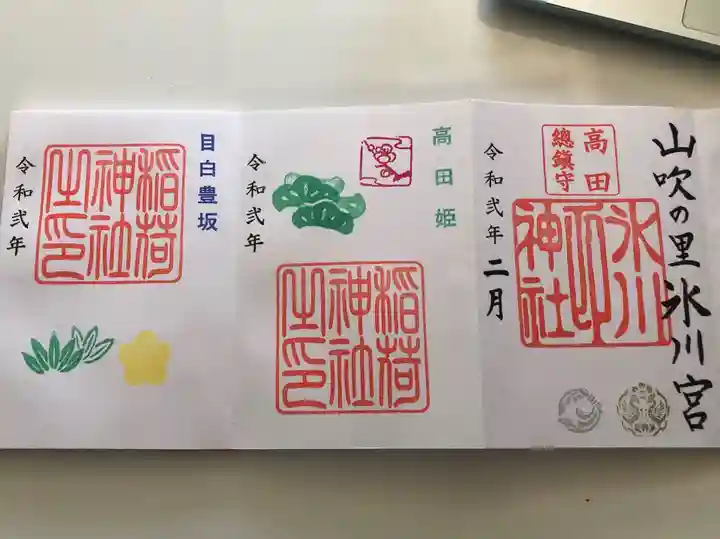 山吹の里氷川宮
高田
總鎮守
氷川
神社
令和弐年二月
高田姫
稲荷
神社
之印
令和弐年
目白豊坂
稲荷
神社
之印
令和弐年